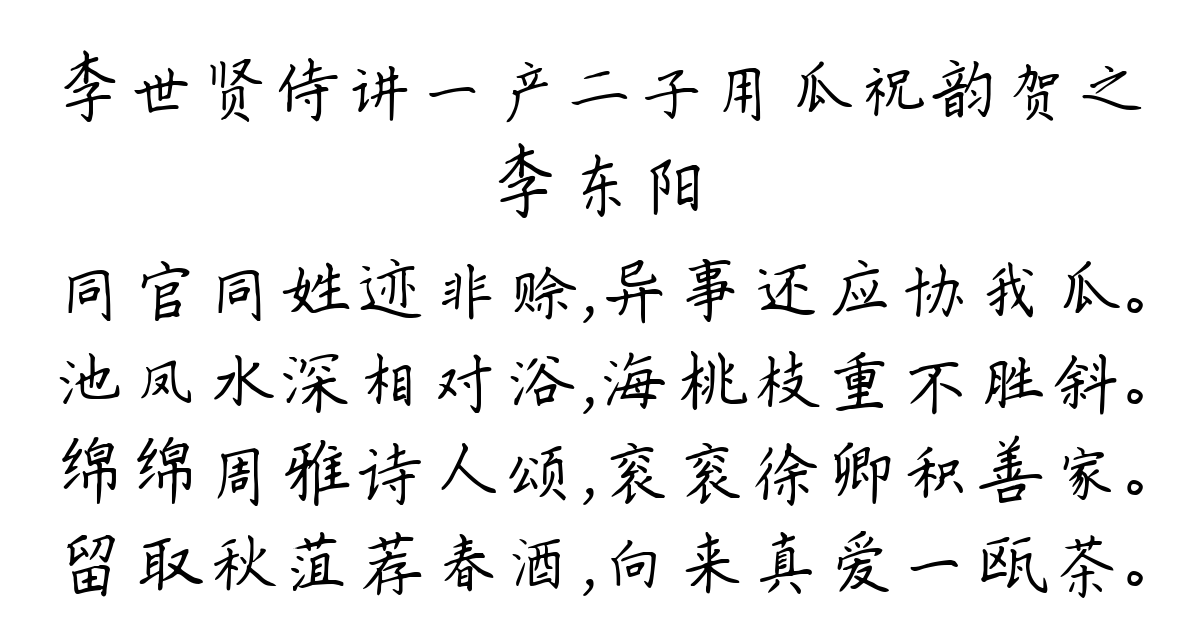 李世贤侍讲一产二子用瓜祝韵贺之
李东阳
同官同姓迹非赊,异事还应协我瓜。
池凤水深相对浴,海桃枝重不胜斜。
绵绵周雅诗人颂,衮衮徐卿积善家。
留取秋菹荐春酒,向来真爱一瓯茶。